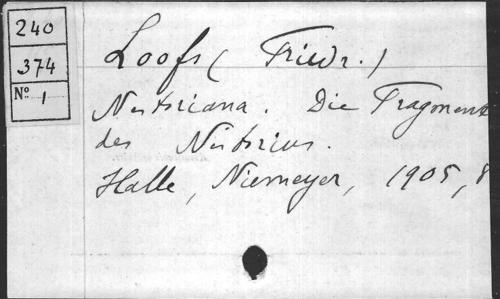 240
374
N° 1
Loofs (Friedr.)
Nestoriana. Die Fragmente
des Nestorius.
Halle, Niemeyer, 1905, 8